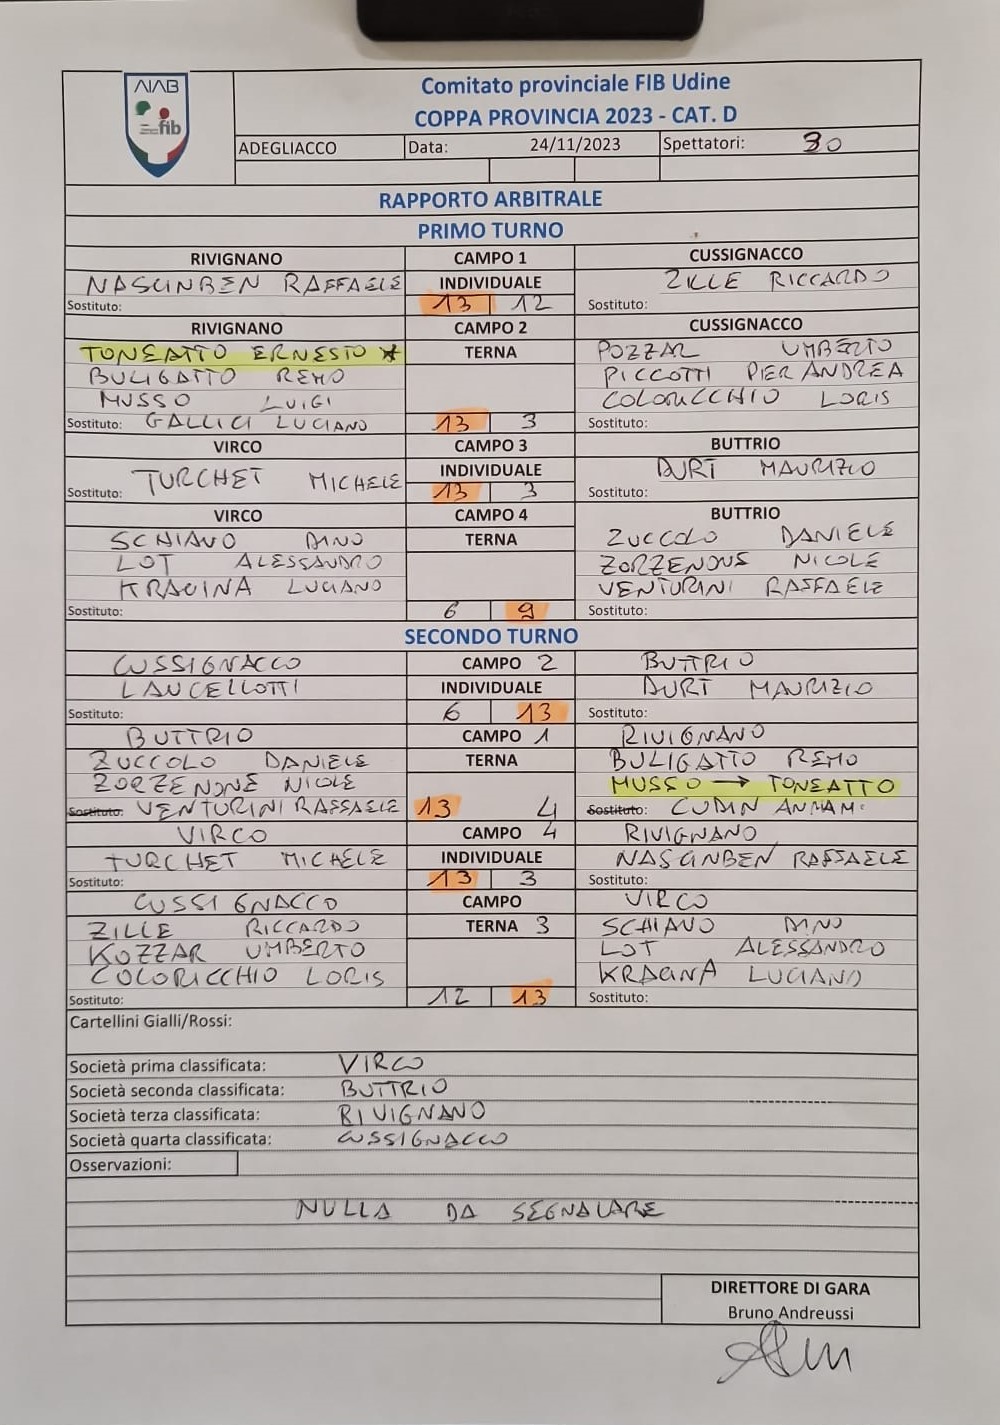 AIAB
fib
Comitato provinciale FIB Udine
COPPA PROVINCIA 2023 - CAT. D
ADEGLIACCO Data: 24/11/2023 Spettatori: 30
RAPPORTO ARBITRALE
PRIMO TURNO
RIVIGNANO CAMPO 1 CUSSIGNACCO
NASCINBEN RAFFAELE INDIVIDUALE ZILLE RICCARDO
Sostituto: 13 12 Sostituto:
RIVIGNANO CAMPO 2 CUSSIGNACCO
TONEATTO ERNESTO * TERNA POZZAR UMBERTO
BULIGATTO REMO PICCOTTI PIER ANDREA
MUSSO LUIGI COLORICCHIO LORIS
Sostituto: GALLICI LUCIANO 13 3 Sostituto:
VIRCO CAMPO 3 BUTTRIO
TURCHET MICHELE INDIVIDUALE DURT MAURIZIO
Sostituto: 13 3 Sostituto:
VIRCO CAMPO 4 BUTTRIO
SCHIAVO DINO TERNA ZUCCOLO DANIELE
LOT ALESSANDRO ZORZENOUS NICOLE
KRAGINA LUCIANO VENTURINI RAFFAELE
Sostituto: 6 9 Sostituto:
SECONDO TURNO
CUSSIGNACCO CAMPO 2 BUTTRIO
LANCELLOTTI INDIVIDUALE DURT MAURIZIO
Sostituto: 6 13 Sostituto:
BUTTRIO CAMPO 1 RIVIGNANO
ZUCCOLO DANIELE TERNA BULIGATTO REMO
ZORZENONE NICOLE MUSSO → TONEATTO
Sostituto: VENTURINI RAFFAELE 13 4 Sostituto: CUDIN
VIRCO CAMPO 4 RIVIGNANO
TURCHET MICHELE INDIVIDUALE NASCINBEN RAFFAELE
Sostituto: 13 3 Sostituto:
CUSSIGNACCO CAMPO VIRCO
ZILLE RICCARDO TERNA 3 SCHIAVO DINO
KOZZAR UMBERTO LOT ALESSANDRO
COLORICCHIO LORIS KRAGINA LUCIANO
Sostituto: 12 13 Sostituto:
Cartellini Gialli/Rossi:
Società prima classificata: VIRCO
Società seconda classificata: BUTTRIO
Società terza classificata: RIVIGNANO
Società quarta classificata: CUSSIGNACCO
Osservazioni:
NULLA DA SEGNALARE
DIRETTORE DI GARA
Bruno Andreussi